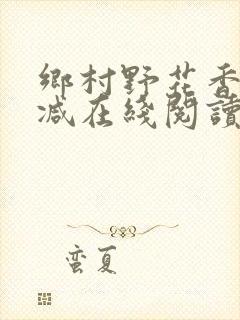 鄉村野花香
减在綫閱讀
蛮夏